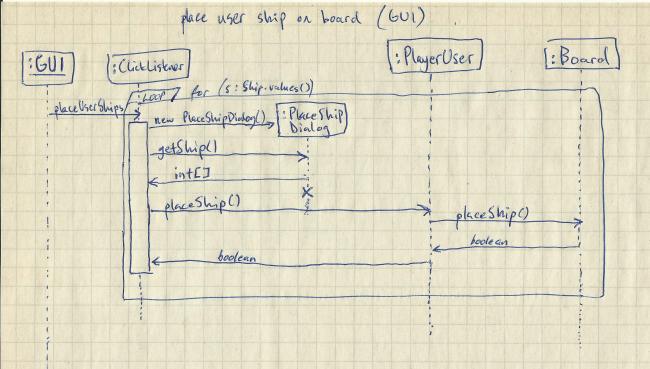 place user ship on board (GUI)
:GUI
:ClickListener
:PlayerUser
:Board
:Loop
for (s : Ship.values())
placeUserShips
new PlaceShipDialog()
:PlaceShip
Dialog
getShip()
int[]
placeShip()
placeShip()
boolean
boolean